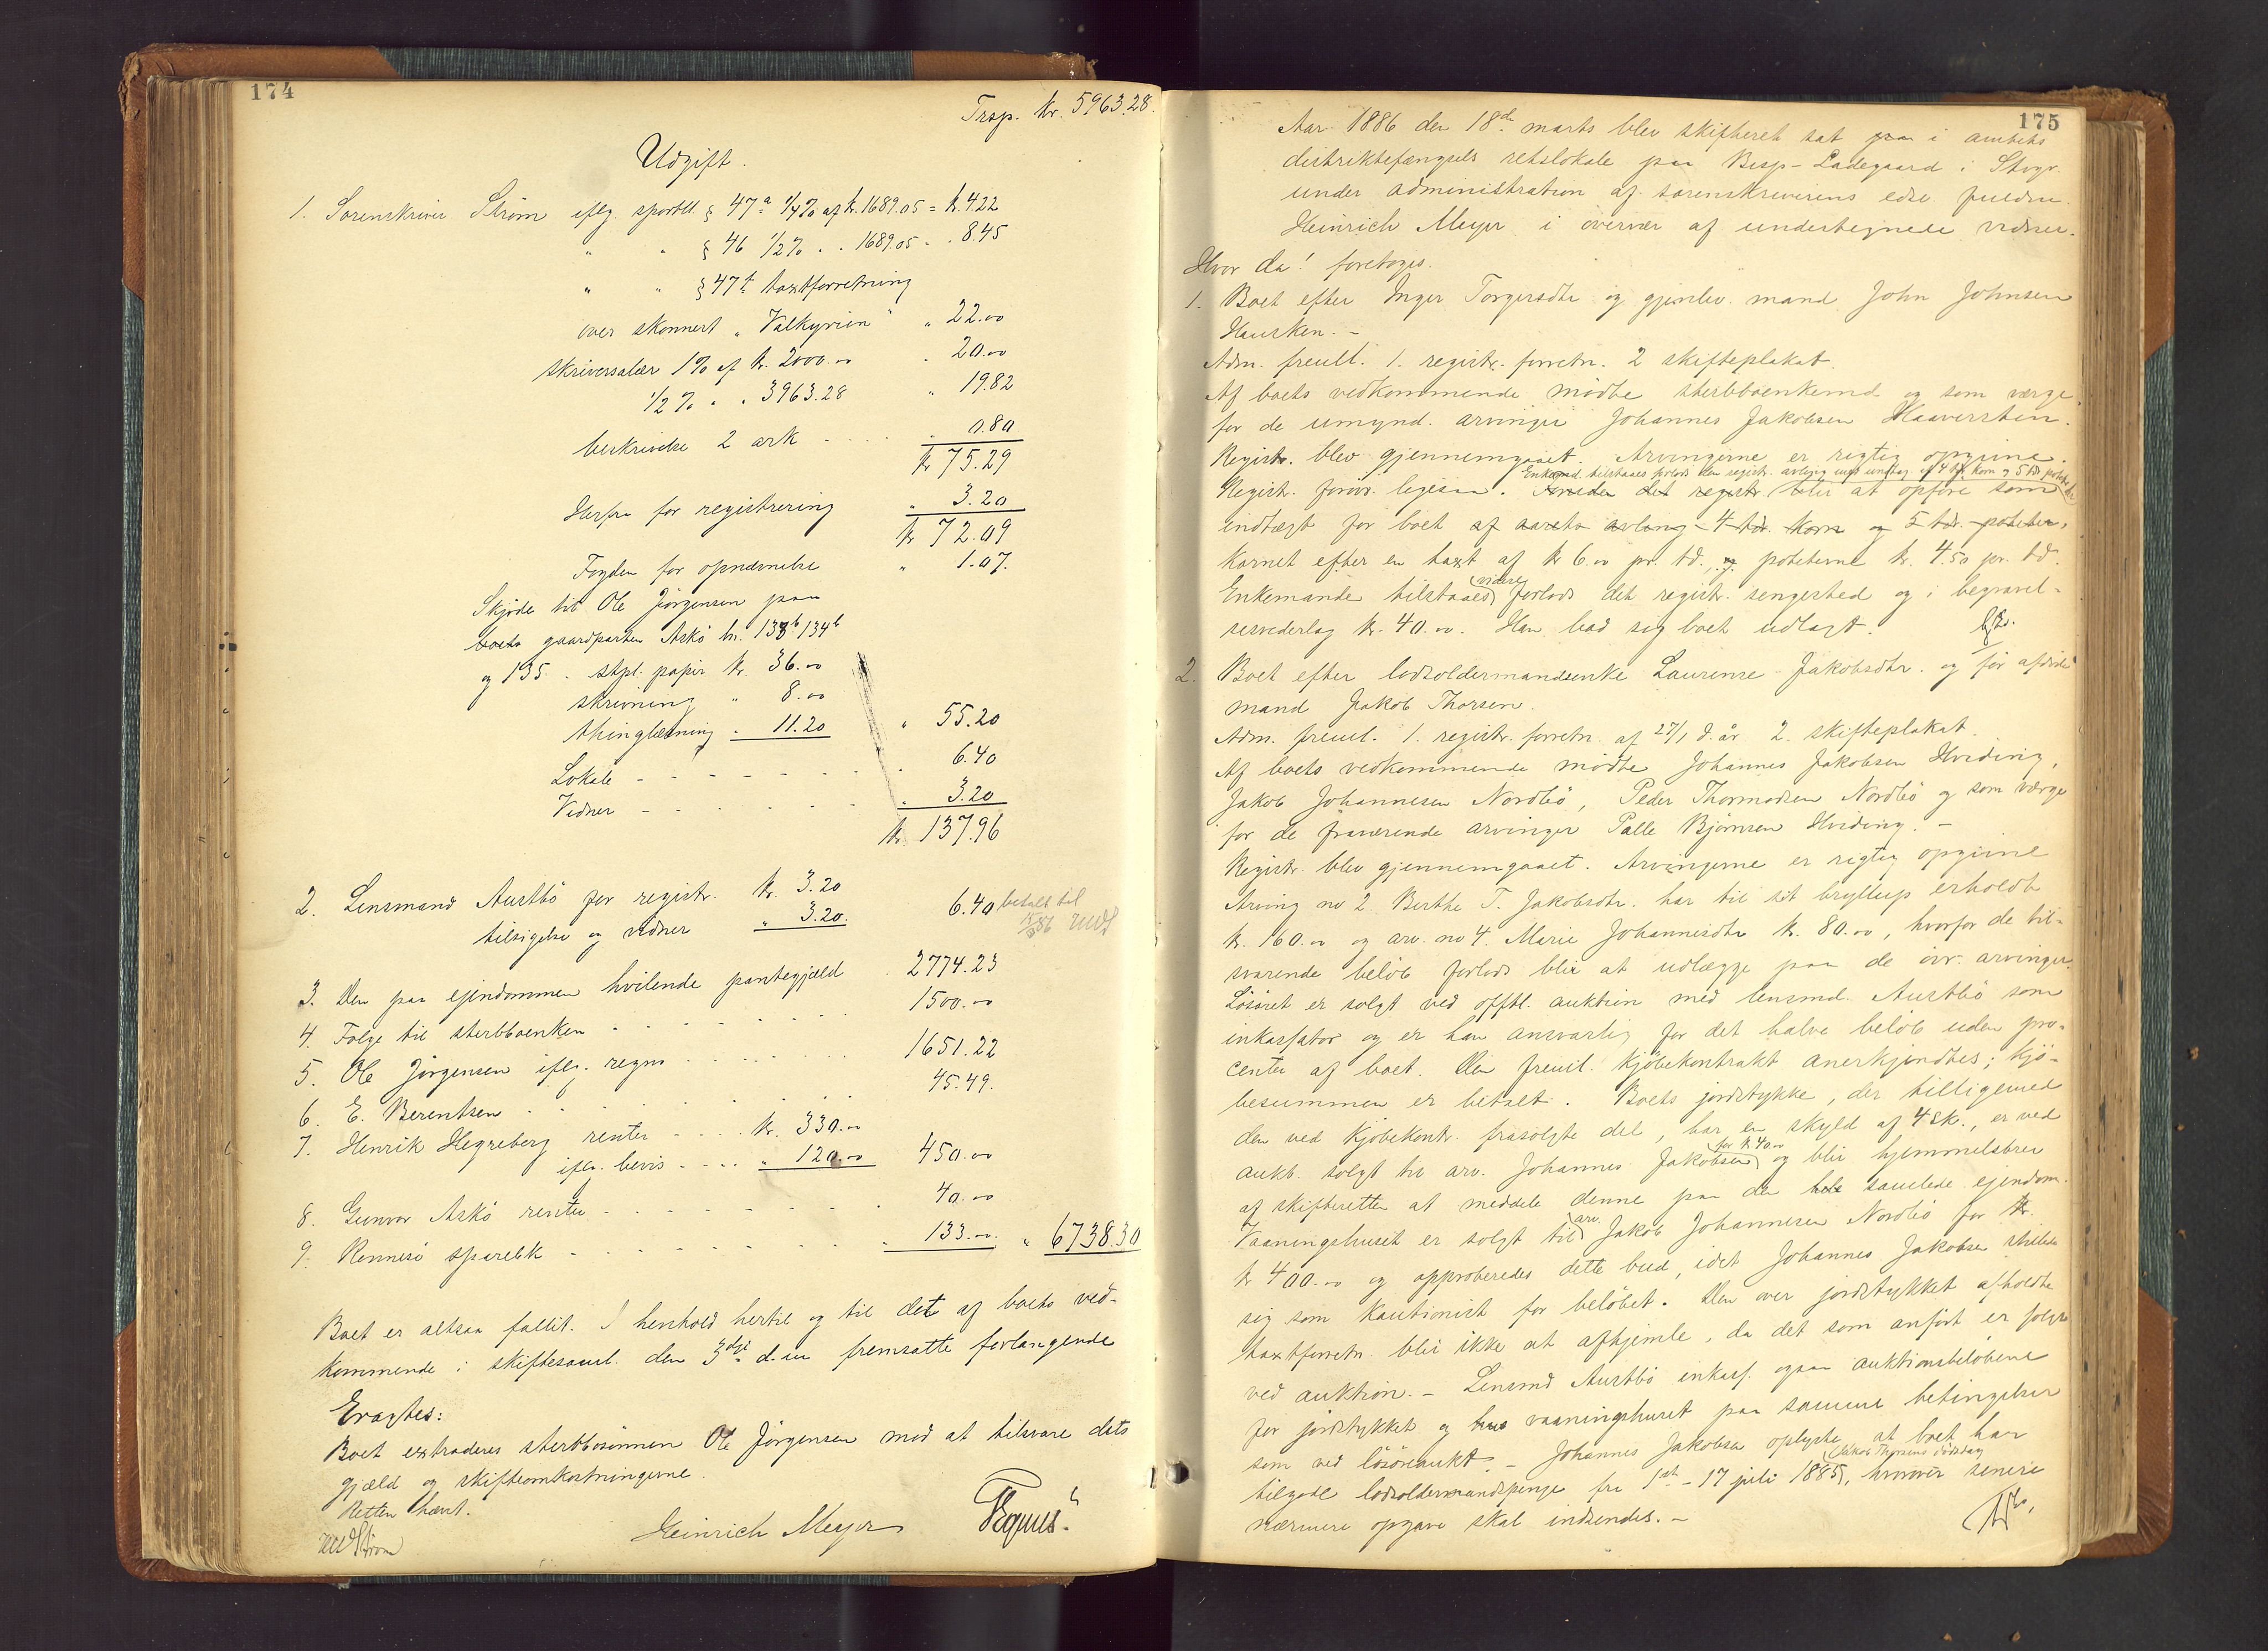 174
Trsp. kr. 5963.28.
Udgift.
1. Sorenskriver Strøm iflg. sportll. § 47 a 1/4 % af kr. 1689.05 = kr. 4.22
" " § 46 1/2 % " " 1689.05 = " 8.45
" " § 47 t taxtforretning
over skonnert "Valkyrien" " 22.00
skriversalær 1 % af kr. 2000.00 " 20.00
1/2 % " " 3963.28 " 19.82
beskrivelse 2 ark " 0.80
kr 75.29
Herfra for registrering " 3.20
kr 72.09
Fogden for opnævnelse " 1.07.
Skjøde til Ole Jörgensen paa
boets gaardparter Askö br. 133 b 134 b
og 135 . stpl. papir kr. 36.00
skrivning " 8.00
thinglæsning " 11.20 " 55.20
Lokale - - - - - " 6.40
Vidner - - - - - " 3.20
kr. 137.96
2. Lensmand Austbö for registr. kr. 3.20
tilsigelse og vidner " 3.20. 6.40 betalt til
3. Den paa ejendommen hvilende pantegjæld . 2774.23
4. Følge til sterbboenken - - - - 1500.00
5. Ole Jörgensen iflg. regn - - - - 1651.22
6. E. Berentsen - - - - 45.49.
7. Henrik Hegreberg renter - - - - kr. 330.00
iflg. bevis - - - - " 120.00 450.00
8. Gunvor Askö renter - - - - 40.00
9. Rennesö sparebk - - - - " 133.00. " 6738.30
Boet er altsaa fallit. I henhold hertil og til det af boets ved-
kommende i skiftesaml. den 3dje d.m fremsatte forlangende
Eragtes:
Boet extraderes sterbbosönnen Ole Jörgensen mod at tilsvare dets
gjæld og skifteomkostningerne.
Retten hævt.
Strøm
Heinrich Meyer
175
Aar 1886 den 18de marts blev skifteret sat paa i amtets
distriktsfængsels retslokale paa Bisp-Ladegaard i Stvgr.
under administration af sorenskriverens edsv. fuldm.
Heinrich Meyer i overvær af undertegnede vidner.
Hvor da! foretoges.
1. Boet efter Inger Torgersdtr og gjenlev. mand John Johnsen
Hausken. -
Adm. freml. 1. registr. forretn. 2 skifteplakat.
Af boets vedkommende mödte sterbboenkemd og som værge
for de umynd. arvinger Johannes Jakobsen Haaversten.
Registr. blev gjennemgaaet. Arvingerne er rigtig opgivne.
Enkemd. tilstaaes forlods den registr. avling med undtag. af 4 tdr. korn og 5 tdr. poteter
Registr. forøvr. ligesaa. Foruden det registr. blir at opföre som
indtægt for boet af aarets avling 4 tdr. korn og 5 tdr. poteter,
kornet efter en taxt af kr 6.00 pr. td., og poteterne kr. 4.50 pr. td.
Enkemanden tilstaaes (videre) forlods det registr. sengested og i begravel-
sesvederlag kr. 40.00. Han bad sig boet udlagt.
2. Boet efter lodsoldermandsenke Laurense Jakobsdtr. og för afdöde
mand Jakob Thorsen.
Adm. freml. 1. registr. forretn. af 27/1 d. år 2. skifteplakat.
Af boets vedkommende mödte Johannes Jakobsen Hviding,
Jakob Johannesen Nordbö, Peder Thormodsen Nordbö og som værge
for de fraværende arvinger Palle Bjørnsen Hviding. -
Registr. blev gjennemgaaet. Arvingerne er rigtig opgivne
Arving no 2 Berthe T. Jakobsdtr. har til sit bryllup erholdt
kr. 160.00 og arv. no 4. Marie Johannesdtr kr. 80.00, hvorfor de til-
svarende belöb forlods blir at udlægge paa de övr. arvinger.
Lösöret er solgt ved offtl. auktion med lensmd. Austbö som
inkassator og er han ansvarlig for det halve belöb uden pro-
center af boet. Den freml. kjöbekontrakt anerkjendtes; kjö-
besummen er betalt. Boets jordstykke, der tilligemed
den ved kjöbekontr. frasolgte del, har en skyld af 4 sk., er ved
aukt. solgt til arv. Johannes Jakobsen (for kr. 40.00) og blir hjemmelsbrev
af skifteretten at meddele denne paa den hele samlede ejendom.
Vaaningshuset er solgt til (arv.) Jakob Johannesen Nordbö for kr.
kr 400.00 og approberedes dette bud, idet Johannes Jakobsen stillede
sig som kautionist for belöbet. Den over jordstykket afholdte
taxtforretn. blir ikke at afhjemle, da det som anfört er solgt
ved auktion. - Lensmd Austbö inkass. ogsaa auktionsbelöbene
for jordstykket og hus vaaningshuset paa samme betingelser
som ved lösöreaukt. - Johannes Jakobsen oplyste, at boet har
tilgode lodsoldermandspenge fra 1st - 17 juli 1885 (Jakob Thorsens dödsdag), hvorover senere
nærmere opgave skal indsendes. -